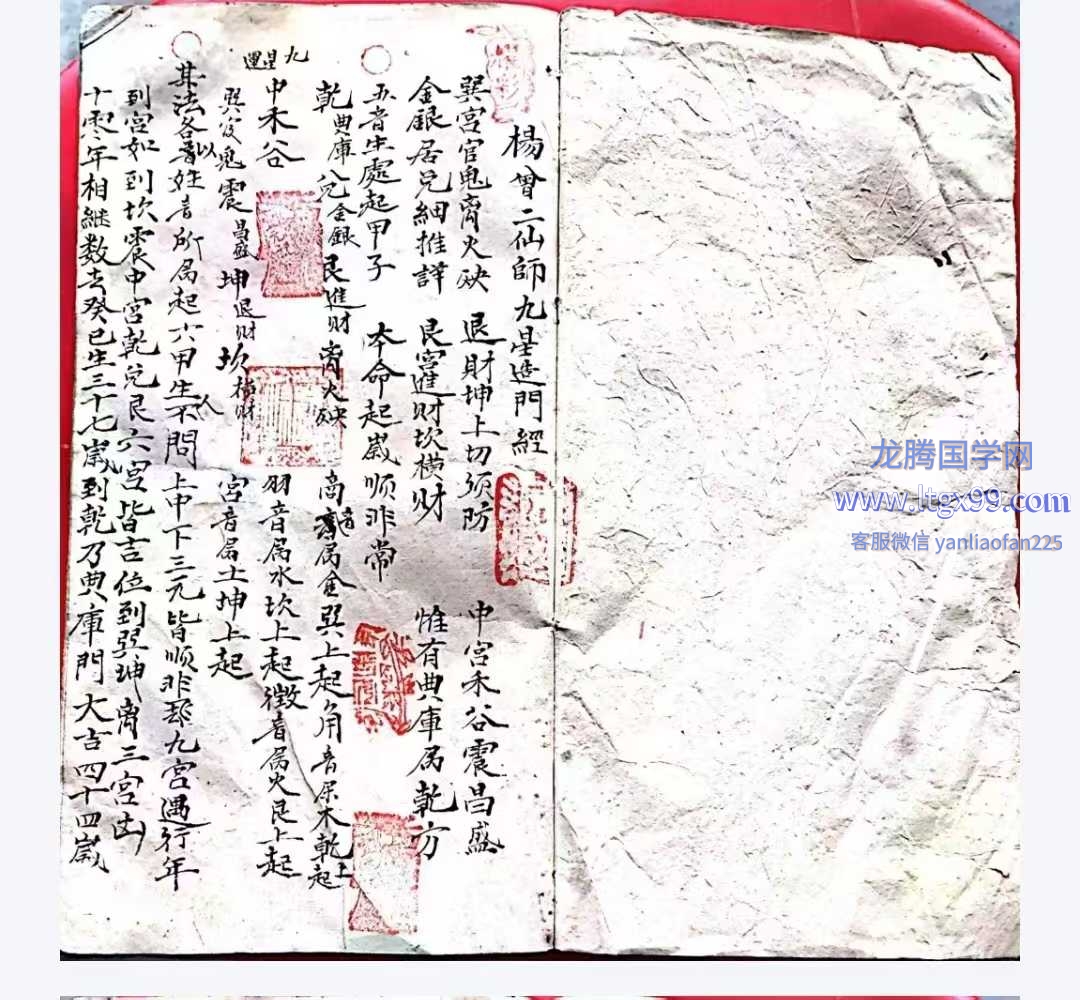 楊曾二仙師九星造門經
巽宮官鬼离火殃 退財坤上切須防 中宮禾谷震昌盛
金銀居兌細推詳 艮宮進財坎横財 惟有典庫属乾方
五音生處起甲子 本命起歲順非常
乾典庫 兌金銀 艮進財 离火殃 商音属金巽上起角音属木乾上起
九星運
中禾谷 羽音属水坎上起徵音属火艮上起
巽官鬼 震昌盛 坤退財 坎横財 宮音属土坤上起
其法各以音姓音所属起六甲生人不問上中下三元皆順非却九宮遇行年
到宮如到坎震中宮乾兌艮六宮皆吉位到巽坤离三宮凶
十零年相継数去癸巳生三十七歲到乾乃典庫門大吉四十四歲
龙腾国学网
www.ltgx99.com
客服微信 yanliaofan225